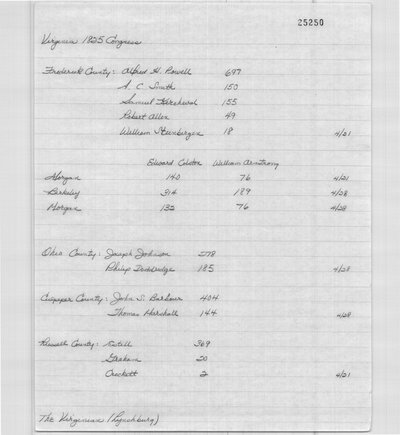 25250
Virginia 1825 Congress
Frederick County: Alfred H. Powell 697
A. C. Smith 150
Samuel Kercheval 155
Robert Allen 49
William Steenbergen 18 4/21
Edward Colston William Armstrong
Morgan 140 76 4/21
Berkeley 314 189 4/28
Morgan 132 76 4/28
Ohio County: Joseph Johnson 278
Philip Doddridge 185 4/28
Culpeper County: John S. Barbour 404
Thomas Marshall 144 4/28
Russell County: 369
Graham 20
Crockett 2 4/21
The Virginian (Lynchburg)